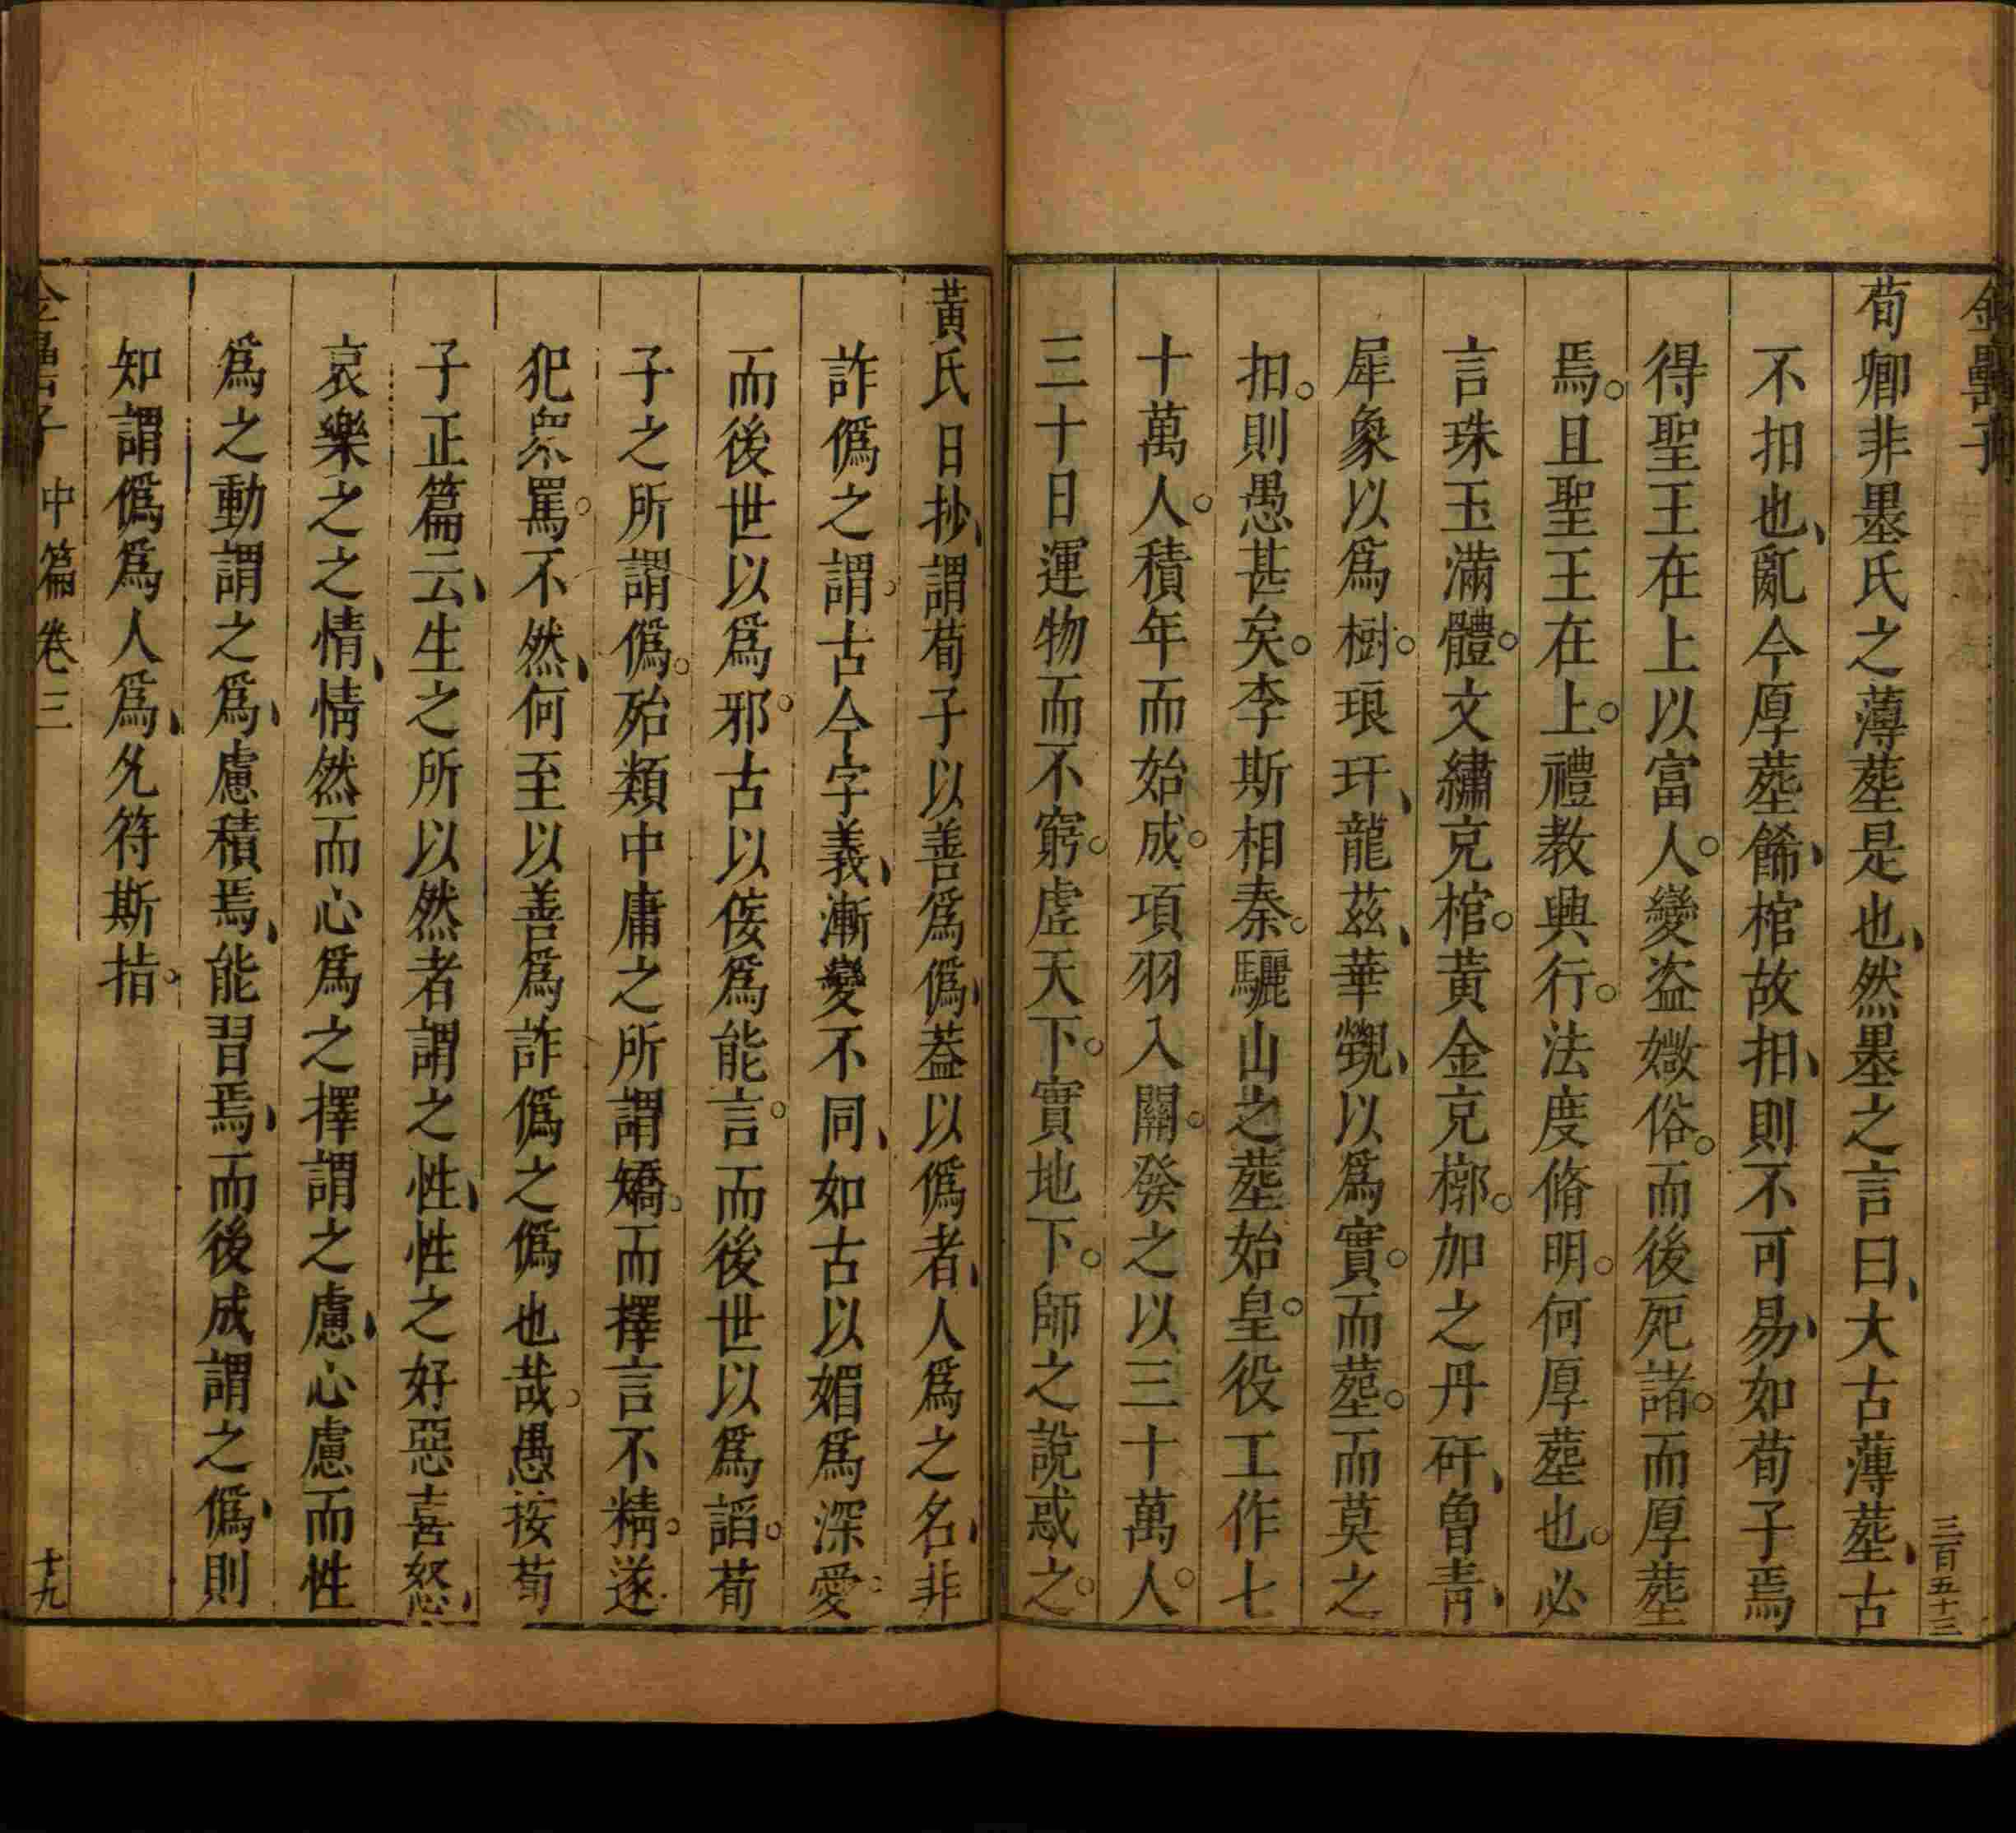 金罍子
三百五十三
荀卿非墨氏之薄塟是也然墨之言曰大古薄塟古
不扣也亂今厚塟餙棺故扣扣則不可易如荀子焉
得聖王在上以富人變盗媺俗而後死諸而厚塟
焉且聖王在上禮教興行法度脩明何厚塟也必
言珠玉滿體文繡充棺黃金充槨加之丹矸曾青
犀象以爲樹琅玕龍茲華覲以爲實而塟而莫之
扣則愚甚矣李斯相秦驪山之塟始皇役工作七
十萬人積年而始成項羽入關發之以三十萬人
三十日運物而不窮虗天下實地下師之說惑之
黃氏日抄謂荀子以善爲僞葢以僞者人爲之名非
詐僞之謂古今字義漸變不同如古以媚爲深愛
而後世以爲邪古以佞爲能言而後世以爲謟荀
子之所謂僞殆類中庸之所謂矯而擇言不精遂
犯衆罵不然何至以善爲詐僞之僞也哉愚按荀
子正篇云生之所以然者謂之性性之好惡喜怒
哀樂之之情情然而心爲之擇謂之慮心慮而性
爲之動謂之爲慮積焉能習焉而後成謂之僞則
知謂僞爲人爲允符斯指
金罍子 中篇卷三
十九